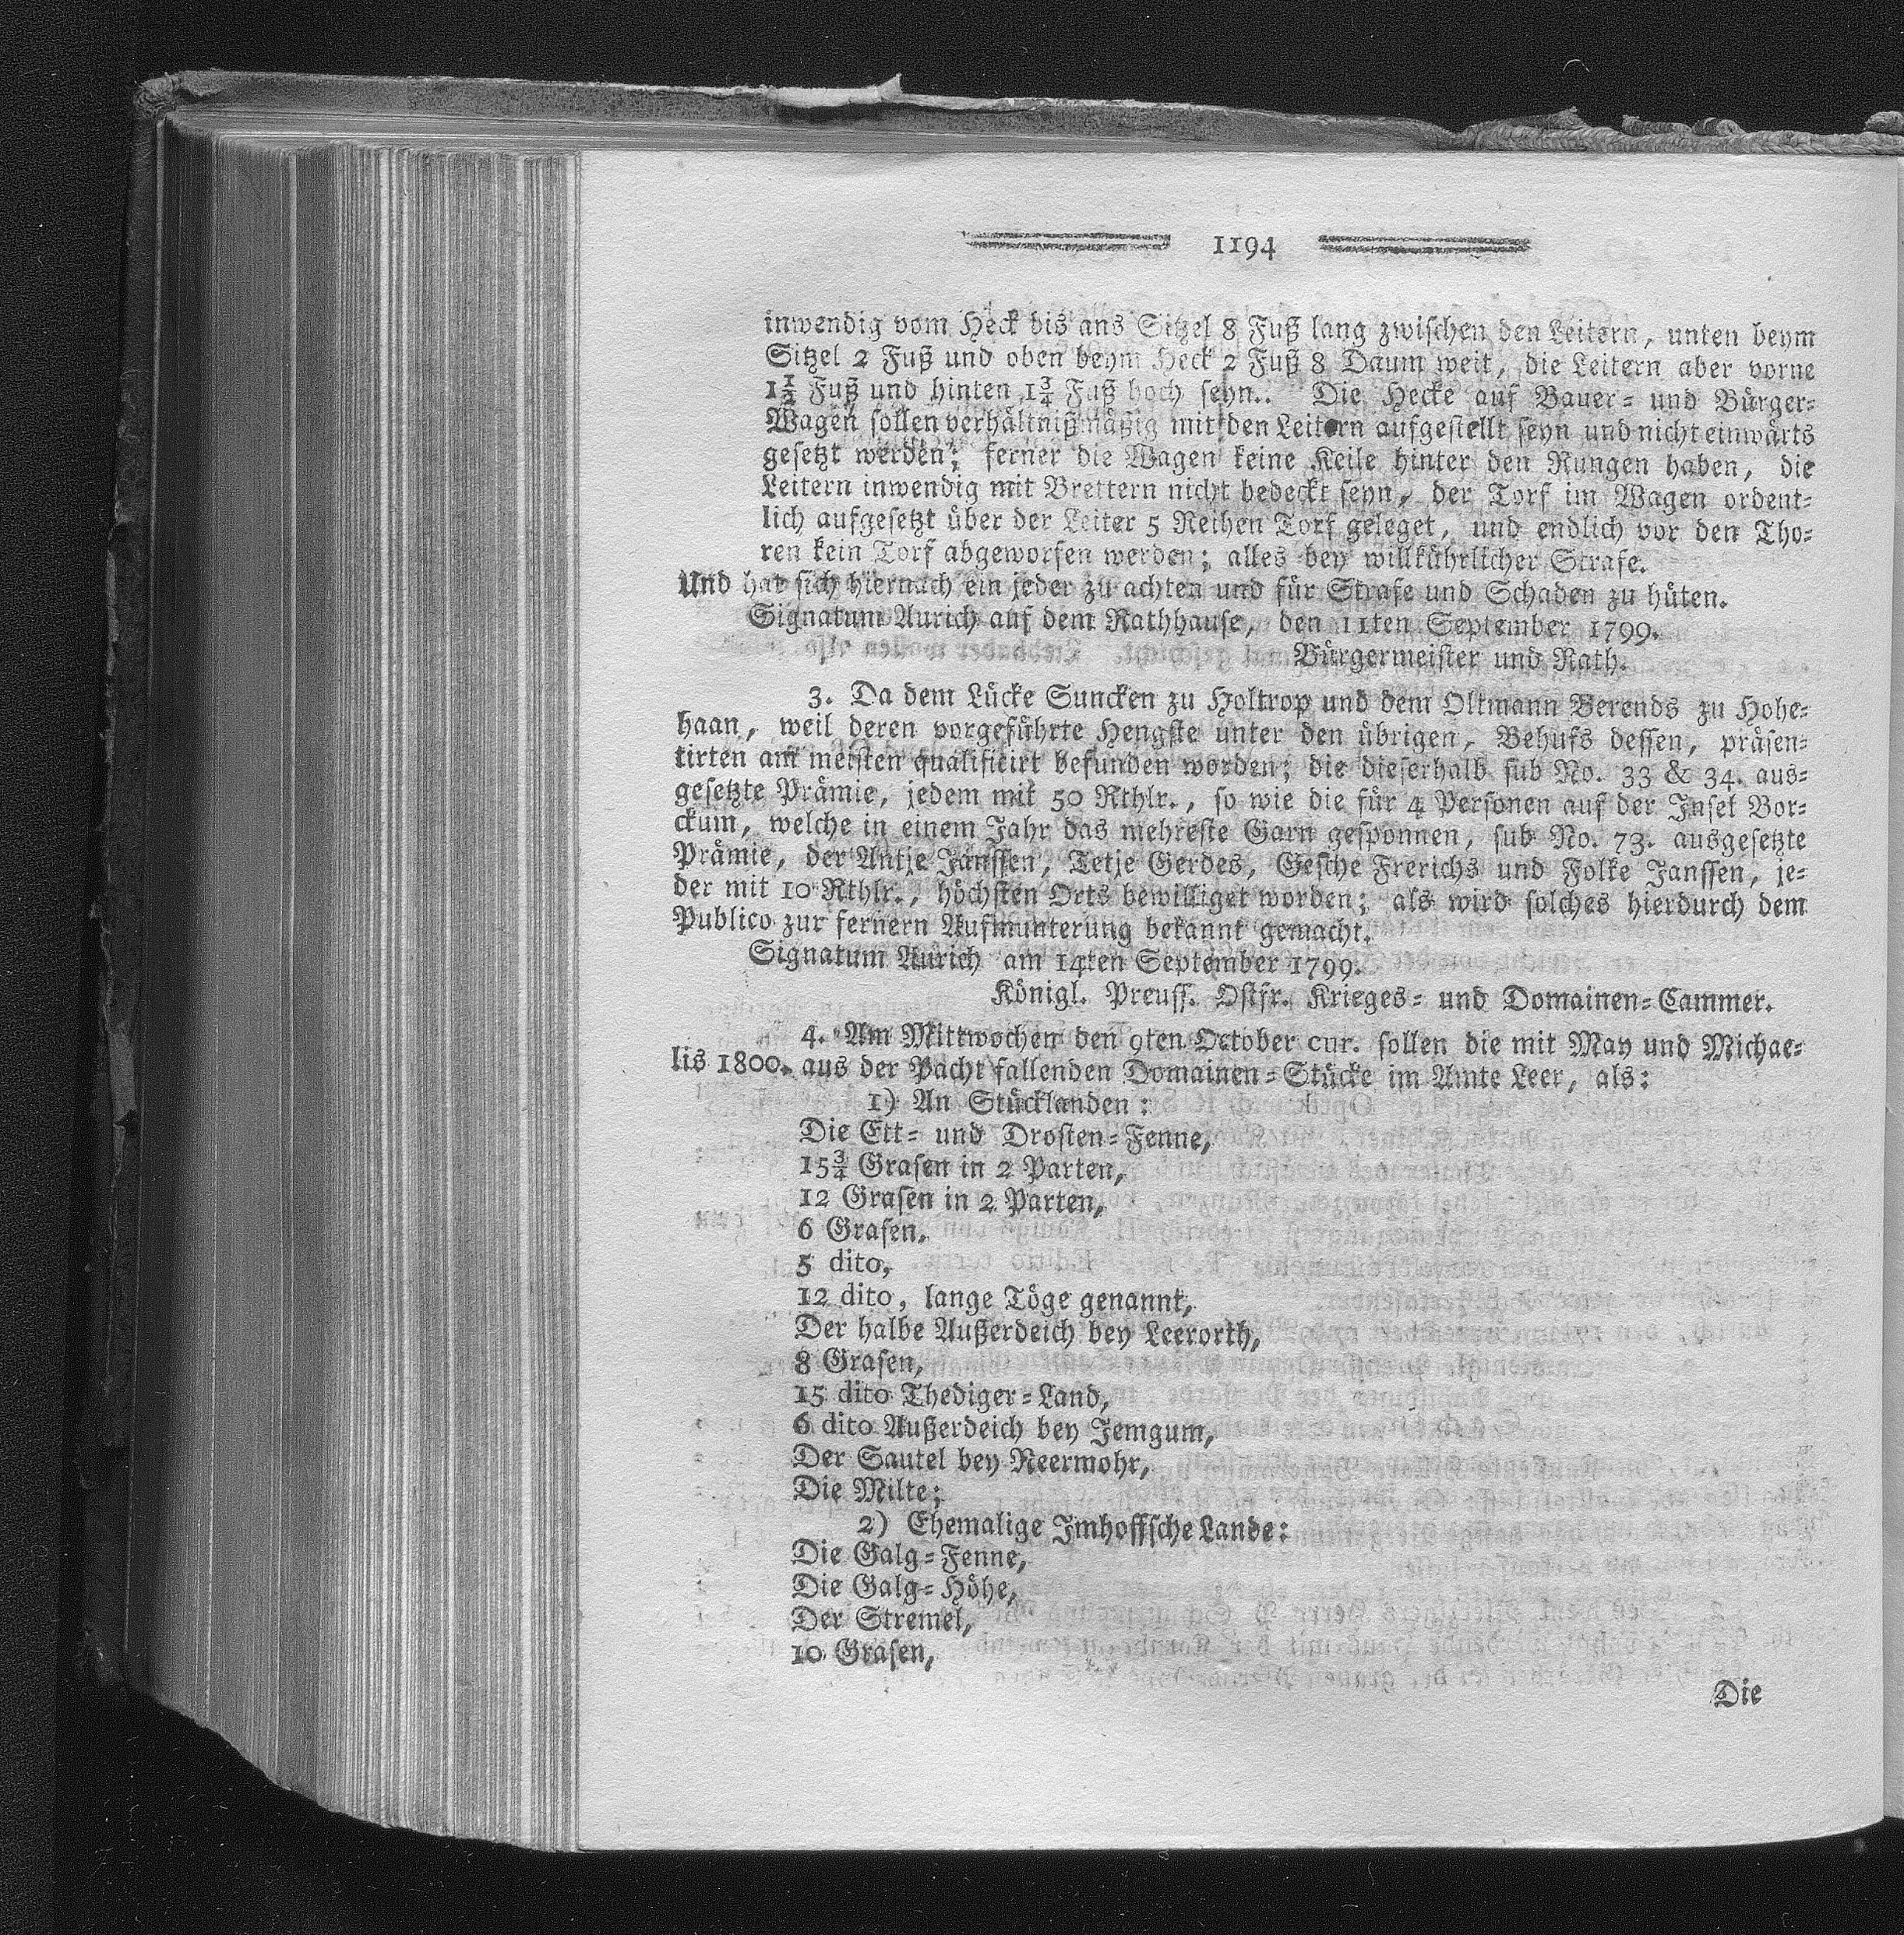 1194
inwendig vom Heck bis ans Sitzel 8 Fuß lang zwischen den Leitern, unten beym
Sitzel 2 Fuß und oben beym Heck 2 Fuß 8 Daum weit, die Leitern aber vorne
1½ Fuß und hinten 1¾ Fuß hoch seyn. Die Hecke auf Bauer- und Bürger-
Wagen sollen verhältnißmäßig mit den Leitern aufgestellt seyn und nicht einwärts
gesetzt werden; ferner die Wagen keine Keile hinter den Rungen haben, die
Leitern inwendig mit Brettern nicht bedeckt seyn, der Torf im Wagen ordent-
lich aufgesetzt über der Leiter 5 Reihen Torf geleget, und endlich vor den Tho-
ren kein Torf abgeworfen werden; alles bey willkührlicher Strafe.
Und hat sich hiernach ein jeder zu achten und für Strafe und Schaden zu hüten.
Signatum Aurich auf dem Rathhause, den 11ten September 1799.
Bürgermeister und Rath.
3. Da dem Lücke Suncken zu Holtrop und dem Oltmann Berends zu Hohe-
haan, weil deren vorgeführte Hengste unter den übrigen, Behufs dessen, präsen-
tirten am meisten qualificirt befunden worden; die dieserhalb sub No. 33 & 34. aus-
gesetzte Prämie, jedem mit 50 Rthlr., so wie die für 4 Personen auf der Insel Bor-
ckum, welche in einem Jahr das mehreste Garn gesponnen, sub No. 73. ausgesetzte
Prämie, der Antje Janssen, Tetje Gerdes, Gesche Frerichs und Folke Janssen, je-
der mit 10 Rthlr., höchsten Orts bewilliget worden; als wird solches hierdurch dem
Publico zur fernern Aufmunterung bekannt gemacht.
Signatum Aurich am 14ten September 1799.
Königl. Preuss. Ostfr. Krieges- und Domainen-Cammer.
4. Am Mittwochen den 9ten October cur. sollen die mit May und Michae-
lis 1800. aus der Pacht fallenden Domainen-Stücke im Amte Leer, als:
1) An Stücklanden:
Die Ett- und Drosten-Fenne,
15¾ Grasen in 2 Parten,
12 Grasen in 2 Parten,
6 Grasen,
5 dito,
12 dito, lange Töge genannt,
Der halbe Außerdeich bey Leerorth,
8 Grasen,
15 dito Thediger-Land,
6 dito Außerdeich bey Jemgum,
Der Sautel bey Neermohr,
Die Milte;
2) Ehemalige Imhoffsche Lande:
Die Galg-Fenne,
Die Galg-Höhe,
Der Stremel,
10 Grasen,
Die